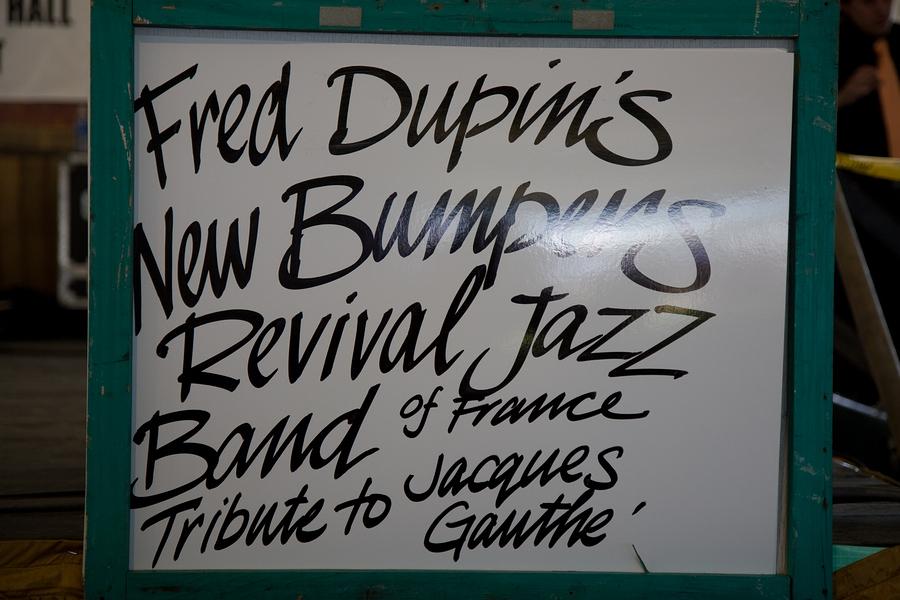 HALL
Fred Dupin's
New Bumpers
Revival Jazz
Band of France
Tribute to Jacques
Gauthe'